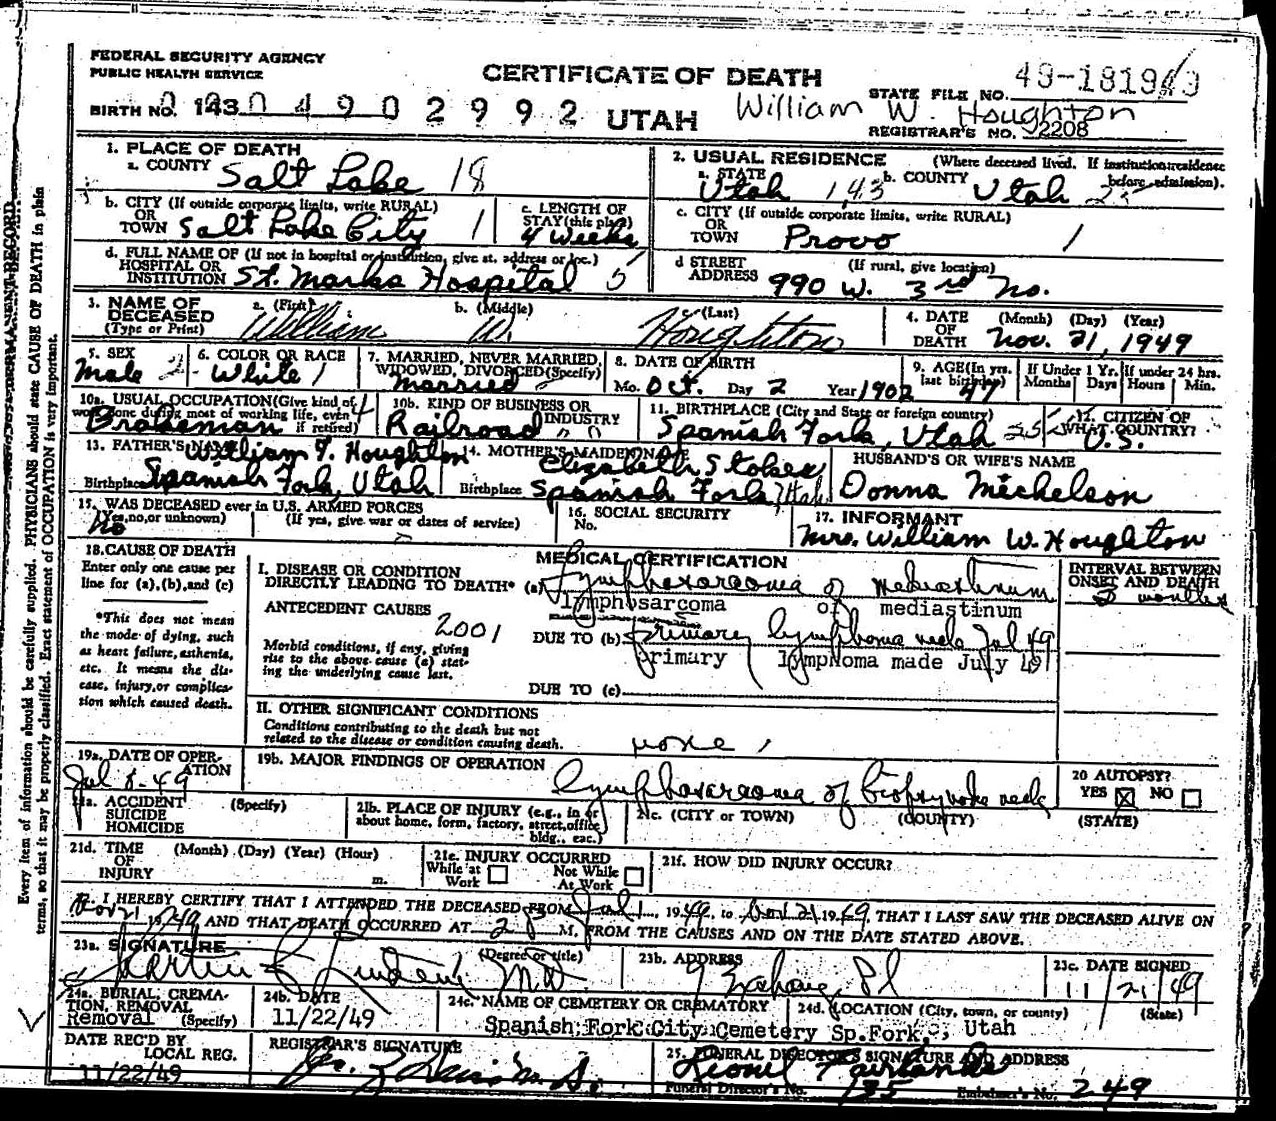 FEDERAL SECURITY AGENCY
PUBLIC HEALTH SERVICE
CERTIFICATE OF DEATH
STATE FILE NO. 49-181949
BIRTH NO. 143 0 4 9 0 2 9 9 2 UTAH William W. Houghton
REGISTRAR'S NO. 2208
1. PLACE OF DEATH
a. COUNTY Salt Lake 18
2. USUAL RESIDENCE (Where deceased lived. If institution: residence before admission).
a. STATE Utah 143 b. COUNTY Utah 25
b. CITY (If outside corporate limits, write RURAL) OR TOWN Salt Lake City 1
c. LENGTH OF STAY (this place) 4 Weeks
c. CITY (If outside corporate limits, write RURAL) OR TOWN Provo 1
d. FULL NAME OF (If not in hospital or institution, give st. address or loc.) HOSPITAL OR INSTITUTION St. Marks Hospital 5
d STREET ADDRESS (If rural, give location) 990 W. 3rd No.
3. NAME OF DECEASED (Type or Print) a. (First) William b. (Middle) W. c. (Last) Houghton
4. DATE OF DEATH (Month) (Day) (Year) Nov. 21, 1949
5. SEX Male 6. COLOR OR RACE White 1
7. MARRIED, NEVER MARRIED, WIDOWED, DIVORCED (Specify) Married
8. DATE OF BIRTH Mo. Oct. Day 2 Year 1902
9. AGE (In yrs. last birthday) 47 If Under 1 Yr. Months Days If under 24 hrs. Hours Min.
10a. USUAL OCCUPATION (Give kind of work done during most of working life, even if retired) Brakeman
10b. KIND OF BUSINESS OR INDUSTRY Railroad
11. BIRTHPLACE (City and State or foreign country) Spanish Fork, Utah
12. CITIZEN OF WHAT COUNTRY? U.S.
13. FATHER'S NAME William T. Houghton
Birthplace Spanish Fork, Utah
14. MOTHER'S MAIDEN NAME Elizabeth Stoker
Birthplace Spanish Fork, Utah
HUSBAND'S OR WIFE'S NAME
Donna Michelson
15. WAS DECEASED ever in U.S. ARMED FORCES
(Yes, no, or unknown) No (If yes, give war or dates of service)
16. SOCIAL SECURITY No.
17. INFORMANT
Mrs. William W. Houghton
18. CAUSE OF DEATH
Enter only one cause per line for (a), (b), and (c)
*This does not mean the mode of dying, such as heart failure, asthenia, etc. It means the disease, injury, or complication which caused death.
MEDICAL CERTIFICATION
I. DISEASE OR CONDITION DIRECTLY LEADING TO DEATH* (a) Lymphosarcoma of mediastinum
lymphosarcoma of mediastinum
INTERVAL BETWEEN ONSET AND DEATH
5 months
ANTECEDENT CAUSES 2001
Morbid conditions, if any, giving rise to the above cause (a) stating the underlying cause last.
DUE TO (b) primary lymphoma neck Jul 49
primary lymphoma made July 49
DUE TO (c)
II. OTHER SIGNIFICANT CONDITIONS
Conditions contributing to the death but not related to the disease or condition causing death. none
19a. DATE OF OPERATION Jul 8-49
19b. MAJOR FINDINGS OF OPERATION Lymphosarcoma of biopsy node neck
20 AUTOPSY? YES ☒ NO ☐
21a. ACCIDENT SUICIDE HOMICIDE (Specify)
21b. PLACE OF INJURY (e.g., in or about home, farm, factory, street, office bldg., etc.)
21c. (CITY or TOWN) (COUNTY) (STATE)
21d. TIME OF INJURY (Month) (Day) (Year) (Hour) m.
21e. INJURY OCCURRED While at Work ☐ Not While At Work ☐
21f. HOW DID INJURY OCCUR?
22. I HEREBY CERTIFY THAT I ATTENDED THE DECEASED FROM Jul 1, 1949, to Nov 21, 1949 THAT I LAST SAW THE DECEASED ALIVE ON
Nov 21 1949 AND THAT DEATH OCCURRED AT 2 M, FROM THE CAUSES AND ON THE DATE STATED ABOVE.
23a. SIGNATURE (Degree or title) Martin C. M.D.
23b. ADDRESS
23c. DATE SIGNED 11/21/49
24a. BURIAL, CREMATION, REMOVAL (Specify) Removal
24b. DATE 11/22/49
24c. NAME OF CEMETERY OR CREMATORY Spanish Fork City Cemetery
24d. LOCATION (City, town, or county) (State) Sp.Fork, Utah
DATE REC'D BY LOCAL REG. 11/22/49
REGISTRAR'S SIGNATURE
25. FUNERAL DIRECTOR'S SIGNATURE AND ADDRESS
Funeral Director's No. 135 Embalmer's No. 249
Every item of information should be carefully supplied. PHYSICIANS should state CAUSE OF DEATH in plain
terms, so that it may be properly classified. Exact statement of OCCUPATION is very important.